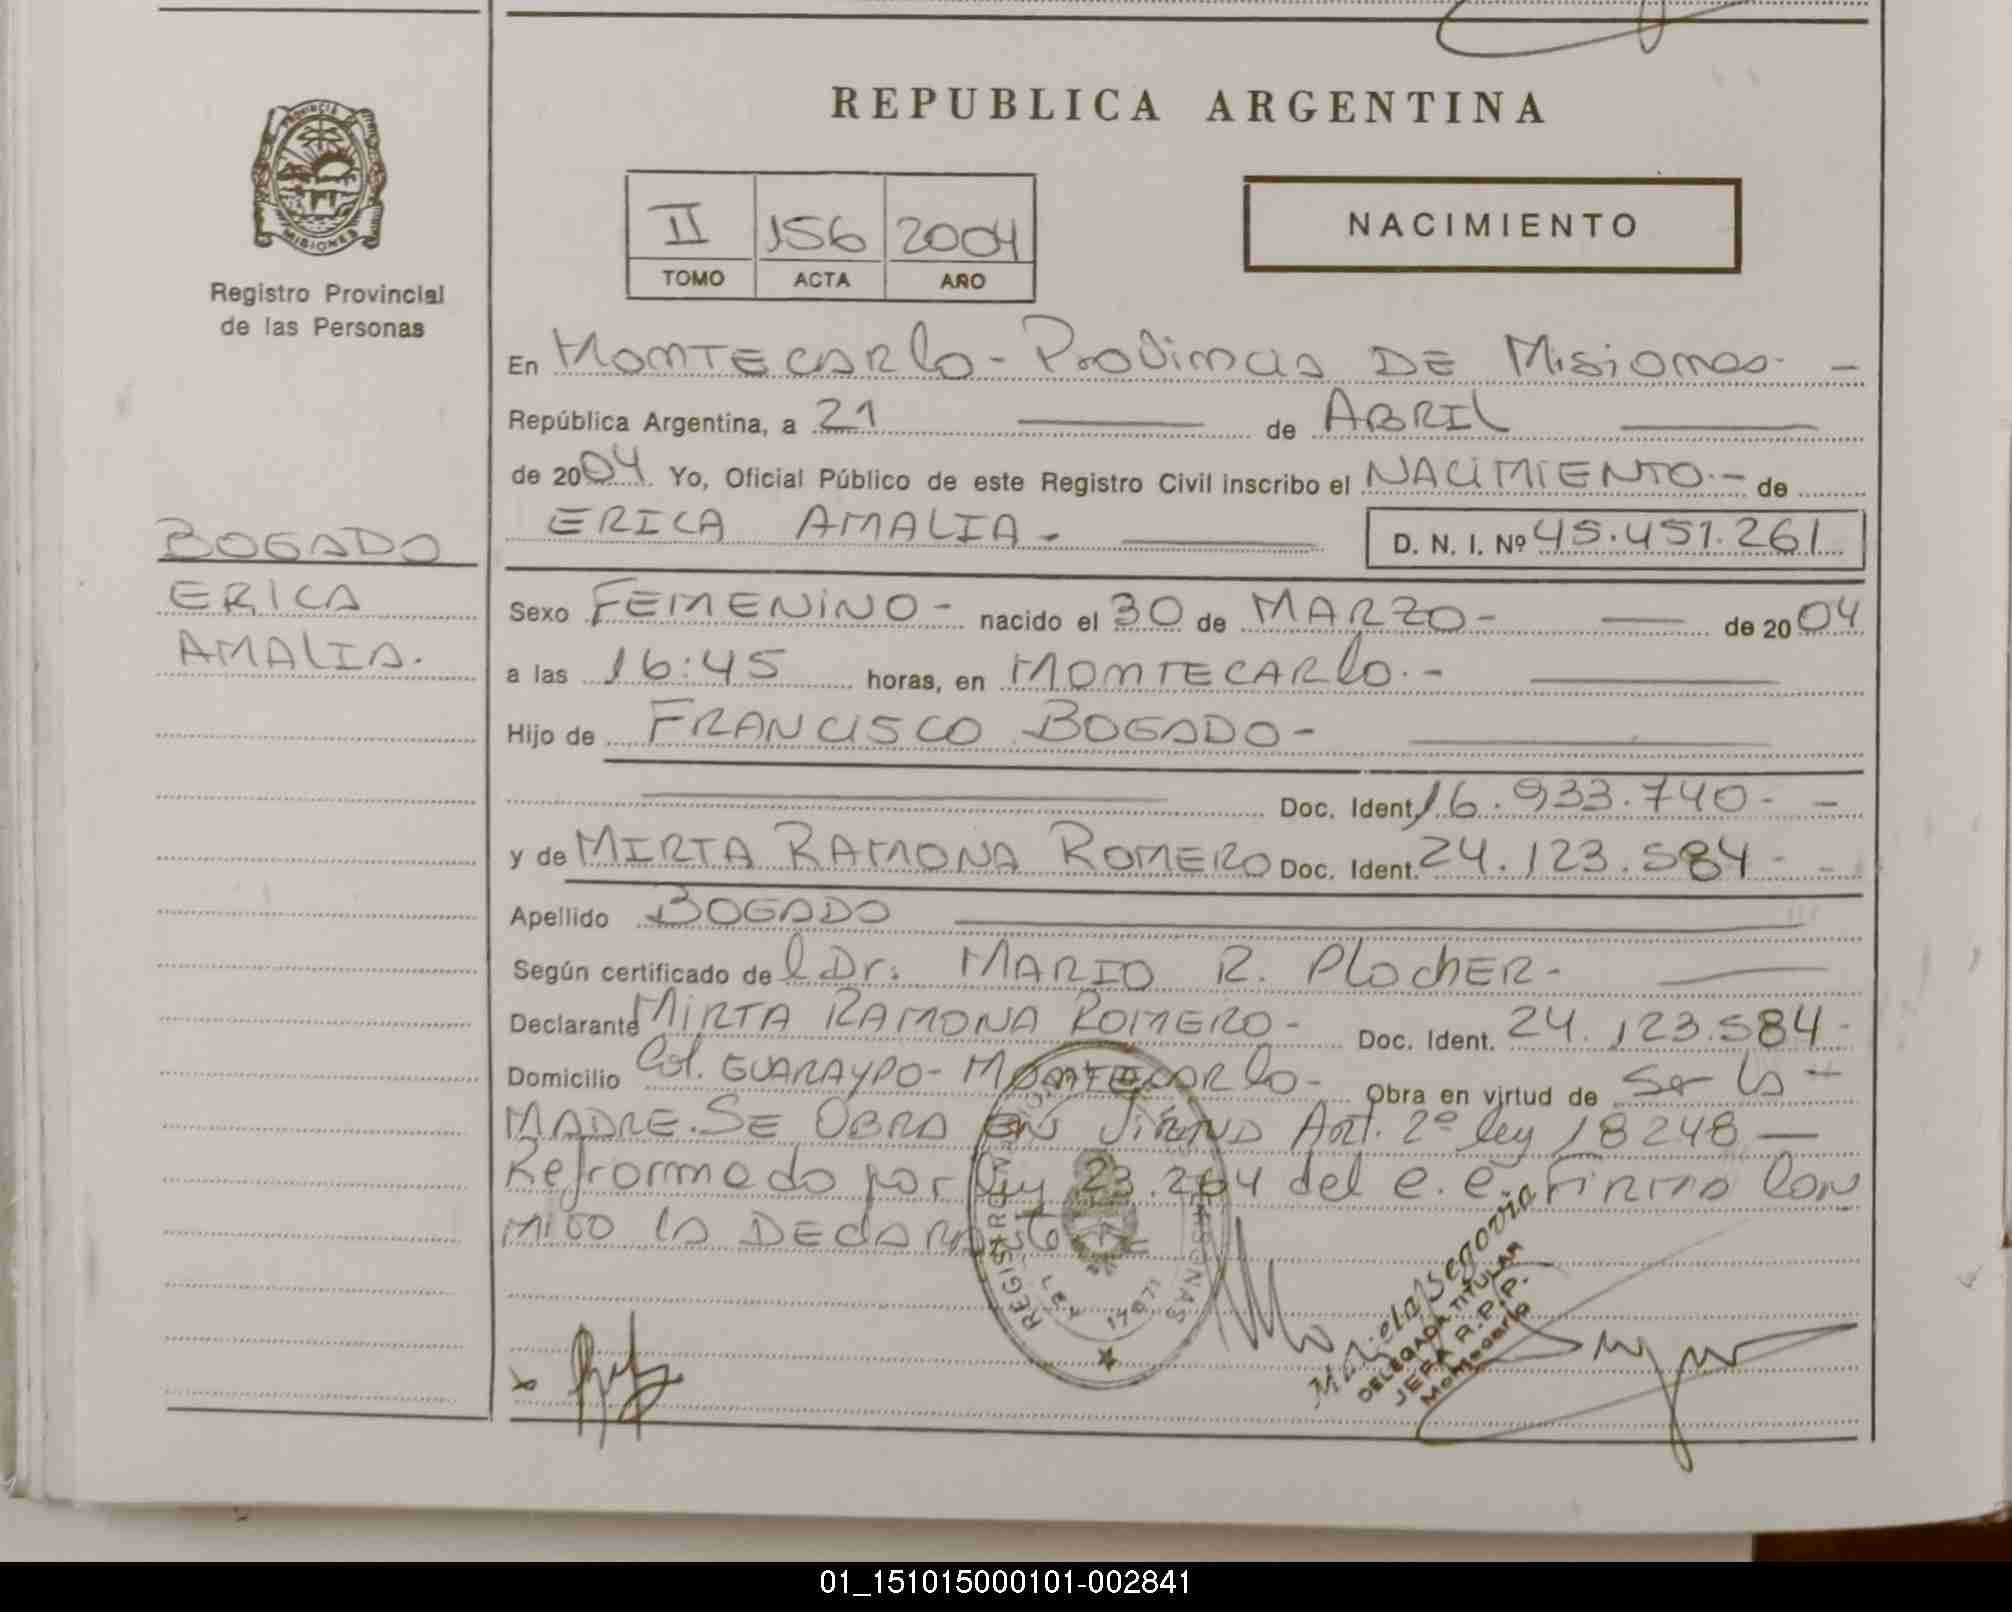 REPUBLICA ARGENTINA
PROVINCIA DE
MISIONES
Registro Provincial
de las Personas
II 156 2004
TOMO ACTA AÑO
NACIMIENTO
En MONTECARlo - Provincia DE Misiones -
República Argentina, a 21 de ABRIL
de 2004. Yo, Oficial Público de este Registro Civil inscribo el NACIMIENTO.- de
ERICA AMALIA - D. N. I. Nº 45.451.261
BOGADO
ERICA
AMALIA.
Sexo FEMENiNO - nacido el 30 de MARZO - de 2004
a las 16:45 horas, en MONTECARlo. -
Hijo de FRANCISCO BOGADO -
Doc. Ident. 16.933.740 - -
y de MIRTA RAMONA ROMERO Doc. Ident. 24.123.584 - -
Apellido BOGADO
Según certificado de l Dr. MARIO R. PlochER -
Declarante MiRTA RAMONA ROMERO - Doc. Ident. 24.123.584 -
Domicilio Col. GUARAYPO - MONTECARlo - Obra en virtud de Ser la -
MADRE. SE OBRA EN Virtud Art. 2º ley 18248 —
Reformado por ley 23.264 del c.c. FIRMA CON
MIGO LA DEClARANTE
REGISTRO PERSONAS
Mariela Segovia
DELEGADA TITULAR
JEFA R.P.P.
Montecarlo
01_151015000101-002841